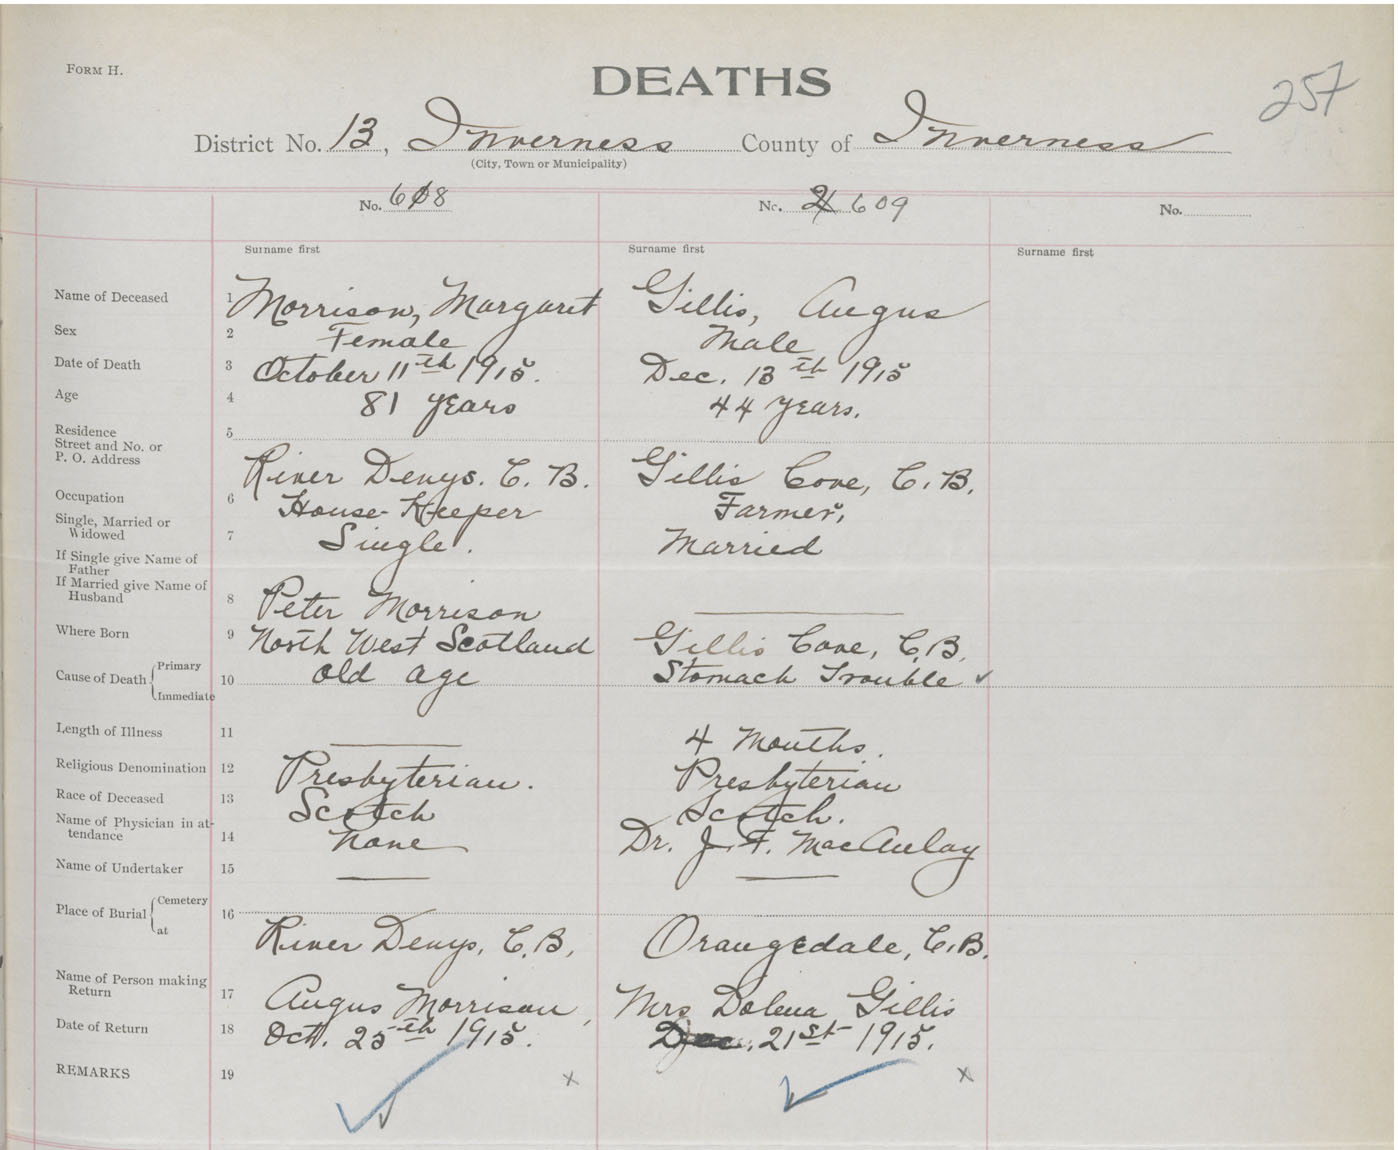 FORM H.
DEATHS
257
District No. 13, Inverness County of Inverness
(City, Town or Municipality)
No. 608 No. 609 No.
Surname first Surname first Surname first
Name of Deceased 1 Morrison, Margaret Gillis, Angus
Sex 2 Female Male
Date of Death 3 October 11th 1915. Dec. 13th 1915
Age 4 81 years 44 years.
Residence
Street and No. or
P. O. Address 5 River Denys. C. B. Gillis Cove, C. B.
Occupation 6 House-Keeper Farmer,
Single, Married or
Widowed 7 Single. Married
If Single give Name of
Father
If Married give Name of
Husband 8 Peter Morrison
Where Born 9 North West Scotland Gillis Cove, C.B.
Cause of Death { Primary
Immediate 10 old age Stomach Trouble
Length of Illness 11 4 Months.
Religious Denomination 12 Presbyterian. Presbyterian
Race of Deceased 13 Scotch Scotch.
Name of Physician in at-
tendance 14 None Dr. J. F. MacAulay
Name of Undertaker 15
Place of Burial { Cemetery
at 16 River Denys, C.B, Orangedale, C.B.
Name of Person making
Return 17 Angus Morrison, Mrs Dolena Gillis
Date of Return 18 Oct. 25th 1915. Dec. 21st 1915.
REMARKS 19 x x